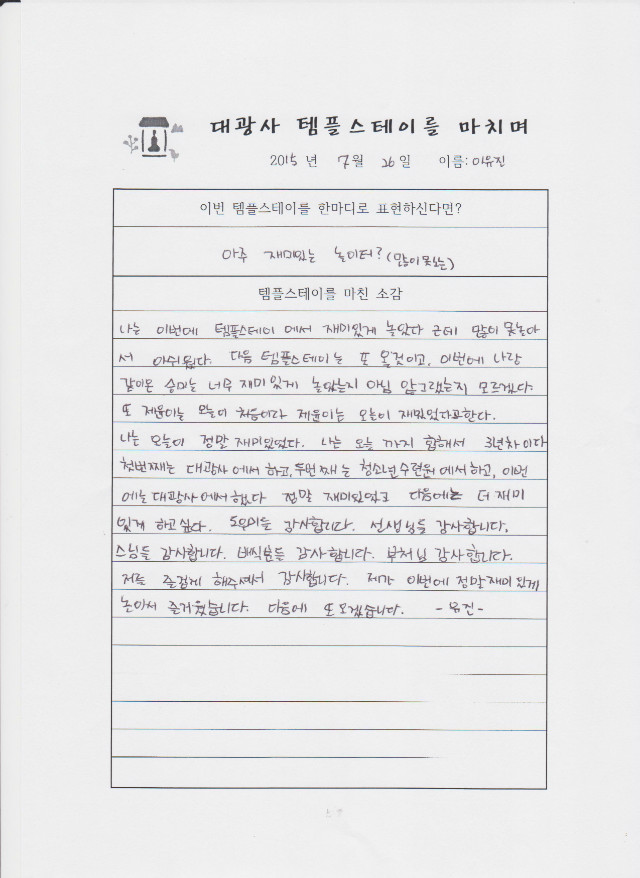 대광사 템플스테이를 마치며
2015 년 7월 26일 이름: 이유진
이번 템플스테이를 한마디로 표현하신다면?
아주 재미있는 놀이터? (많이 못노는)
템플스테이를 마친 소감
나는 이번에 템플스테이 에서 재미있게 놀았다 근데 많이 못놀아
서 아쉬웠다. 다음 템플스테이는 또 올것이고, 이번에 나랑
같이온 승미는 너무 재미있게 놀았는지 아님 안그랬는지 모르겠다.
또 제윤이는 오늘이 처음이라 제윤이는 오늘이 재밌었다고한다.
나는 오늘이 정말 재미있었다. 나는 오늘 까지 합해서 3년차이다
첫번째는 대광사 에서 하고, 두번째 는 청소년수련원 에서하고, 이번
에는 대광사에서 했다 정말 재미있었고 다음에는 더 재미
있게 하고 싶다. 도우미들 감사합니다. 선생님들 감사합니다.
스님들 감사합니다. 감사합니다. 부처님 감사합니다.
저를 즐겁게 해주셔서 감사합니다. 제가 이번에 정말 재미 있게
놀아서 즐거웠습니다. 다음에 또 오겠습니다. -유진-